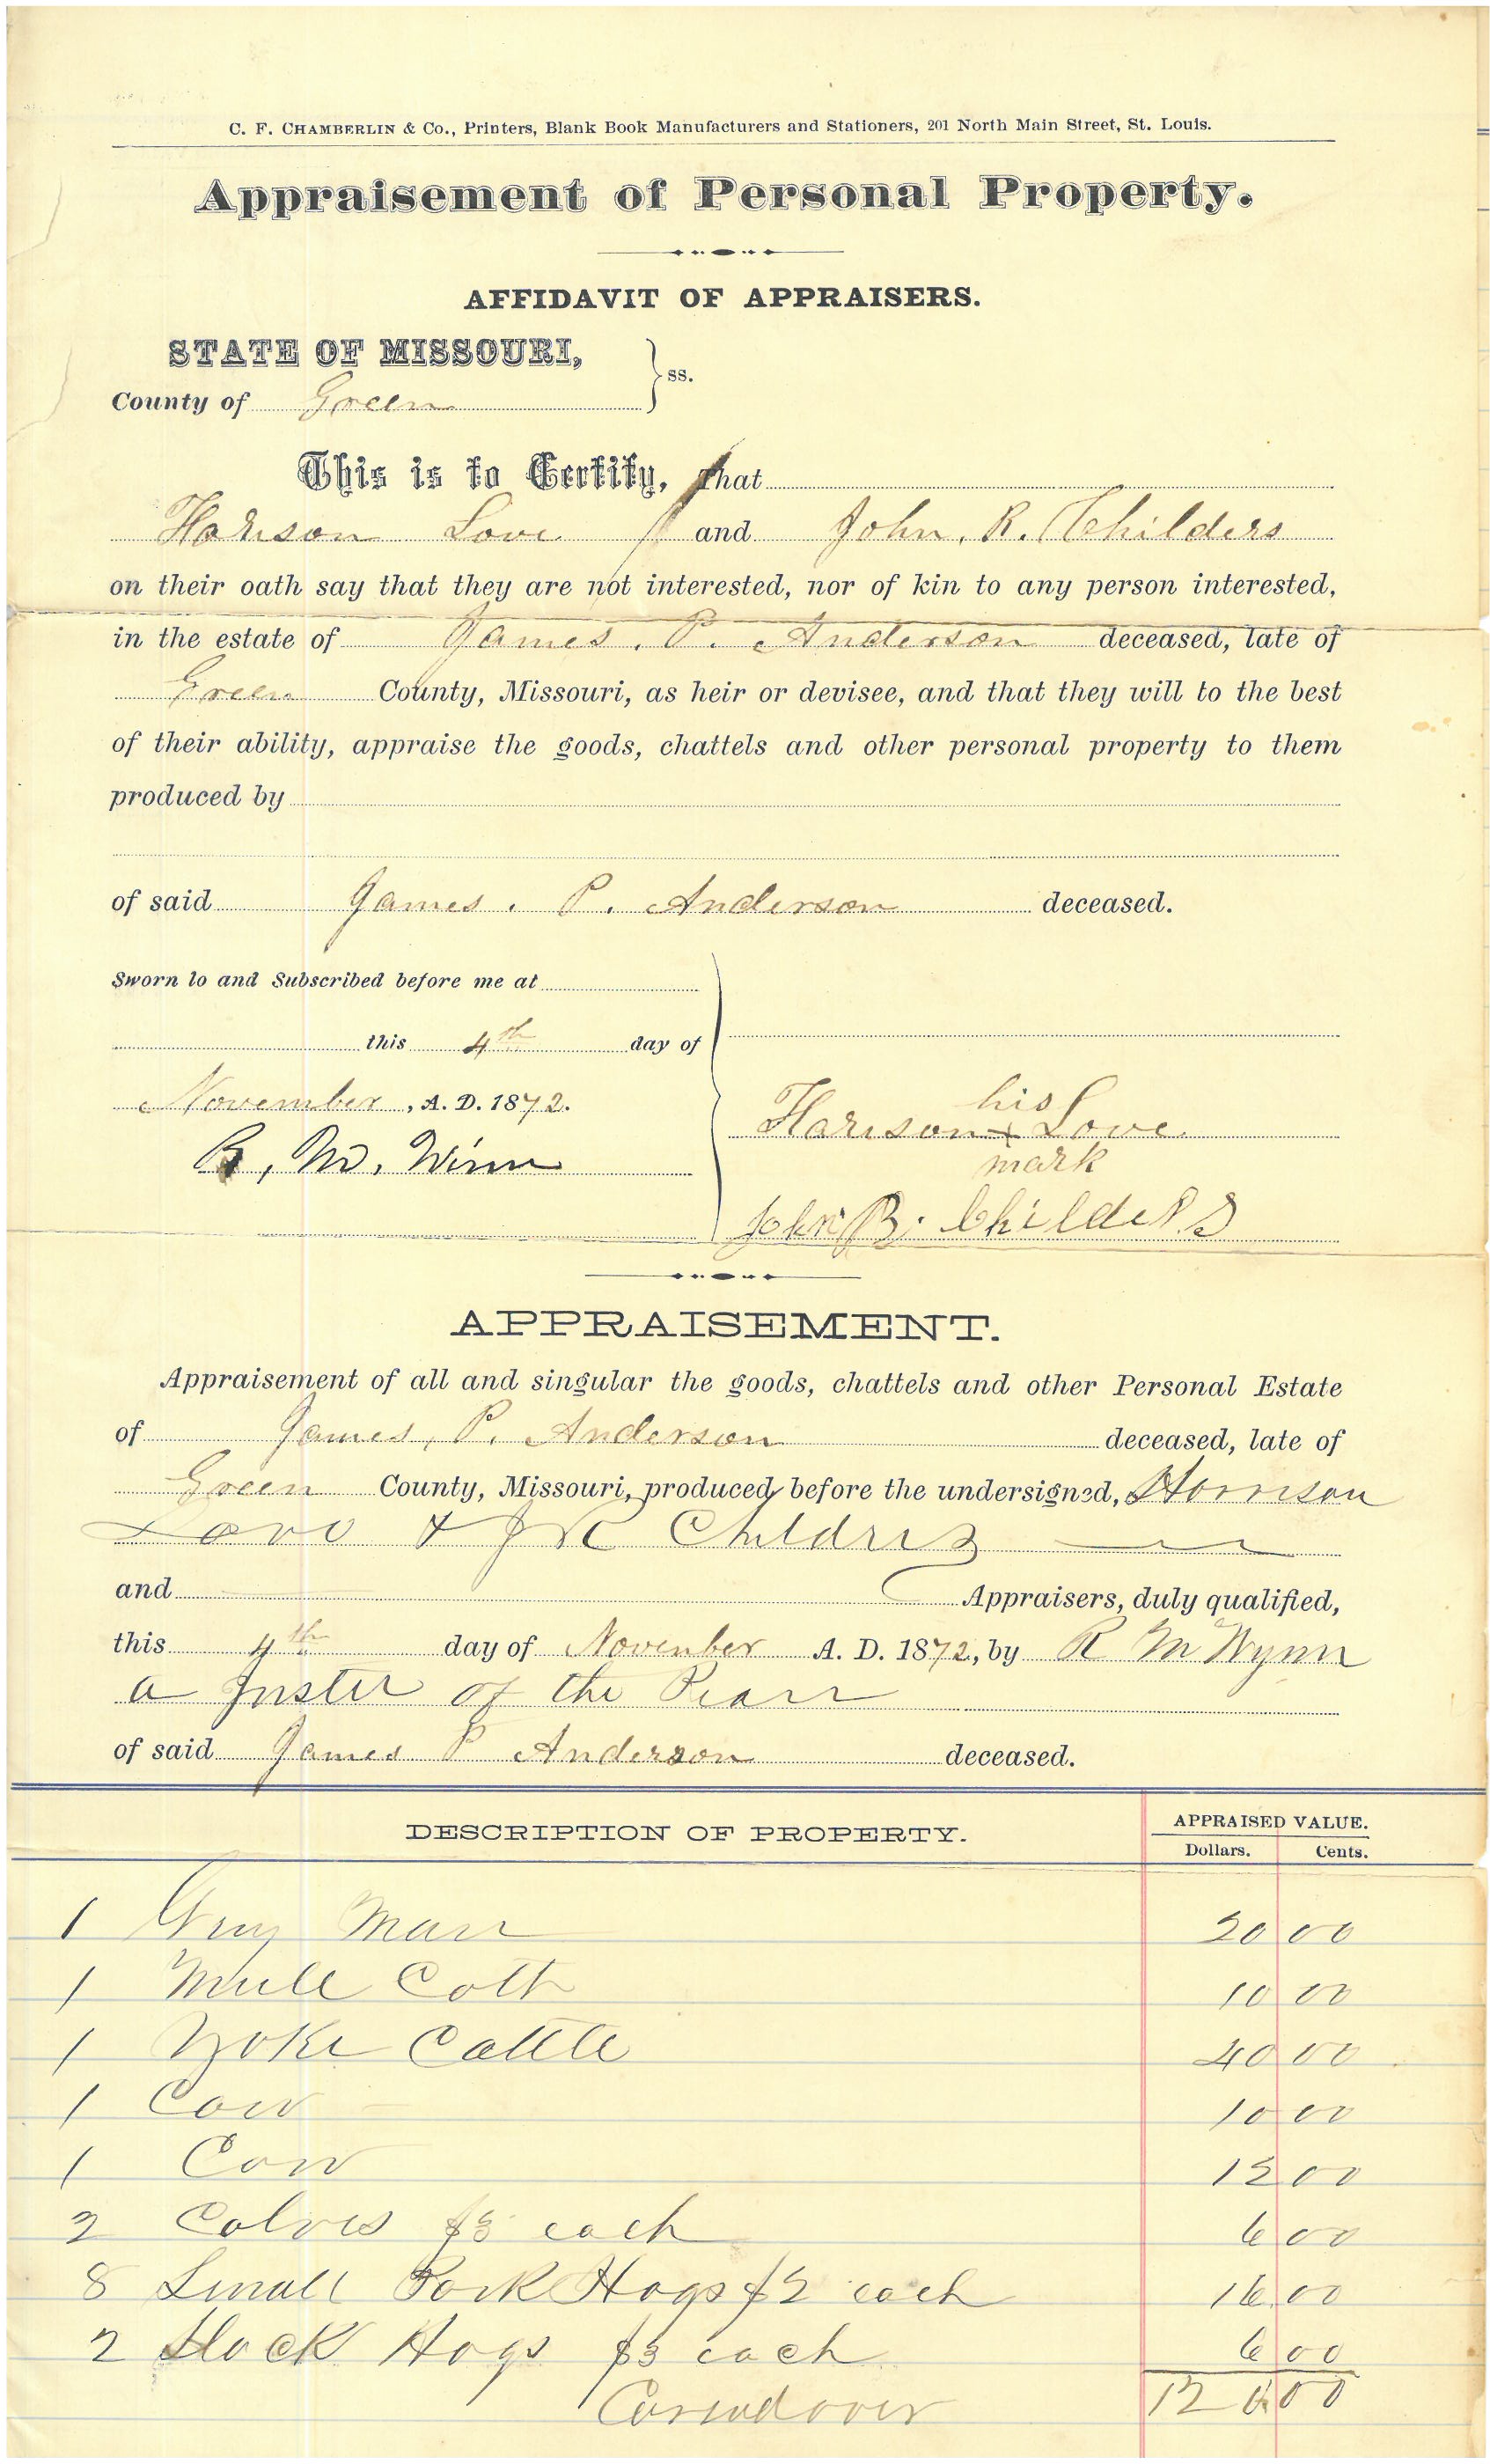 C. F. CHAMBERLIN & Co., Printers, Blank Book Manufacturers and Stationers, 201 North Main Street, St. Louis.
Appraisement of Personal Property.
AFFIDAVIT OF APPRAISERS.
STATE OF MISSOURI,
ss.
County of Green
This is to Certify, That
Harison Love and John. R. Childers
on their oath say that they are not interested, nor of kin to any person interested,
in the estate of James. P. Anderson deceased, late of
Green County, Missouri, as heir or devisee, and that they will to the best
of their ability, appraise the goods, chattels and other personal property to them
produced by
of said James. P. Anderson deceased.
Sworn to and Subscribed before me at
this 4th day of
November, A. D. 1872.
R, M, Winn
his
Harison x Love
mark
John R. Childers
APPRAISEMENT.
Appraisement of all and singular the goods, chattels and other Personal Estate
of James, P. Anderson deceased, late of
Green County, Missouri, produced before the undersigned, Horrison
Love & J R Childris
and Appraisers, duly qualified,
this 4th day of November A. D. 1872, by R M Wynn
a Juster of the Pearr
of said James P Anderson deceased.
DESCRIPTION OF PROPERTY. APPRAISED VALUE.
Dollars. Cents.
1 Gray Marr 20 00
1 Mule Colt 10 00
1 Yoke Cattle 40 00
1 Cow 10 00
1 Cow 12 00
2 Calves $3 each 6 00
8 Small Pork Hogs $2 each 16 00
2 Stock Hogs $3 each 6 00
Caried over 120.00